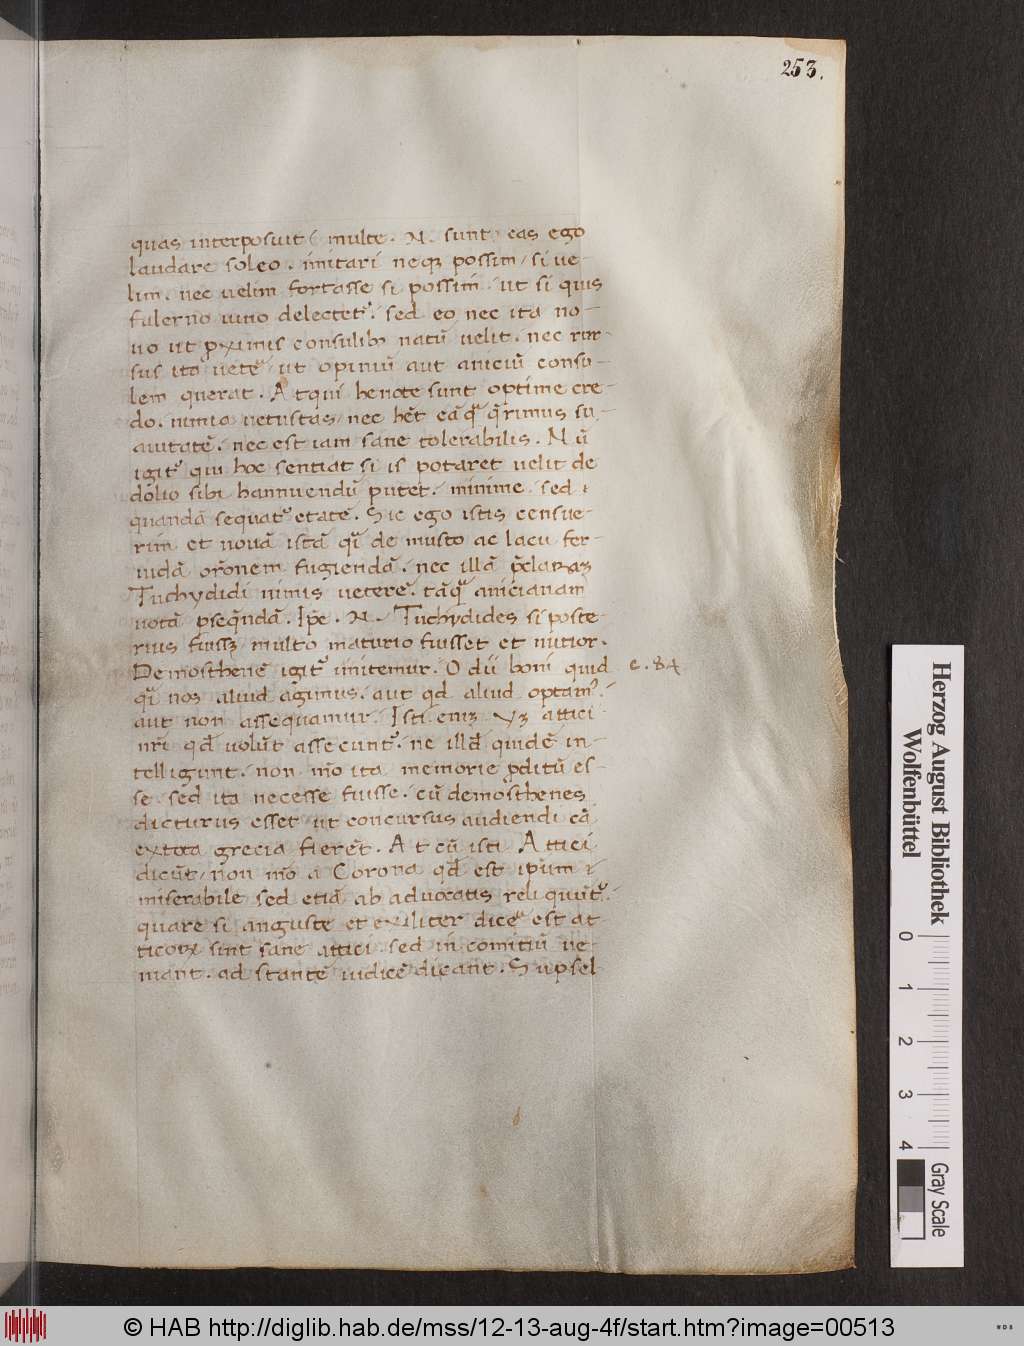 253.
quas interposuit / multe. N. sunt eas ego
laudare soleo. imitari neqȝ possim / si ue-
lim. nec uelim fortasse si possim. ut si quis
falerno uino delectet᷑. sed eo nec ita no-
uo ut ꝓximis consulib; natū uelit. nec rur-
sus ita ueteʳ / ut opiniū aut aniciū consu-
lem querat. Atqui he note sunt optime cre-
do. nimia uetustas / nec hēt eā qͣ q̄rimus su
auitatē. nec est iam sane tolerabilis. Nū
igit᷑ qui hoc sentiat si is potare uelit de
dolio sibi hannuendū putet. minime. sed
quandā sequat᷑ etatē. Sic ego istis censue-
rim et nouā istā qͣ de musto ac lacu fer-
uidā or̄onem fugiendā. nec illā p̄claraȝ
Tuchydidi nimis ueterē. tāqͣ anicianam
notā ꝑseq̄ndā. Ip̄e. N. Tuchydides si poste-
rius fuissȝ / multo maturio fuisset et mitior.
Demosthenē igit᷑ imitemur. O dii boni quid
c. 84
qͥ nos aliud agimus. aut qd̄ aliud optam᷒.
aut non assequamur. Isti eniȝ Attici
nr̄i qd̄ uolūt assecunt᷑. ne illd̄ quidē in-
telligunt. non mō ita memorie ꝓditū es-
se. sed ita necesse fuisse. cū demosthenes
dicturus esset ut concursus audiendi cā
ex tota grecia fierēt. At cū isti Attici
dicūt / non mō a Corona qd̄ est ipsum
miserabile sed etiā ab aduocatis reliquūt᷑.
quare si anguste et exiliter diceʳ est at
ticoꝝ sint sane attici. sed in comitiū ue-
niant. ad stantē iudicē dicant. Supsel
Herzog August Bibliothek
Wolfenbüttel
0 1 2 3 4
Gray Scale
© HAB http://diglib.hab.de/mss/12-13-aug-4f/start.htm?image=00513